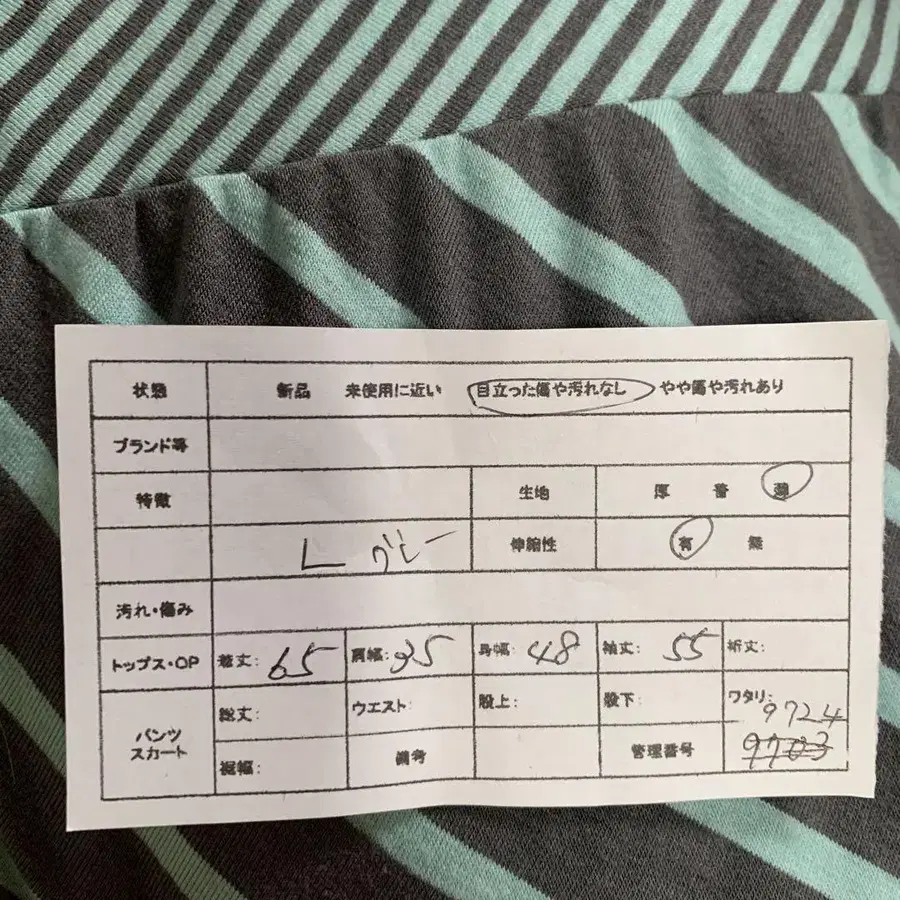 状態 新品 未使用に近い 目立った傷や汚れなし やや傷や汚れあり
ブランド等
特徴 生地 厚 普 薄
L グレー 伸縮性 有 無
汚れ・傷み
トップス・OP 着丈: 65 肩幅: 35 身幅: 48 袖丈: 55 裄丈:
パンツ スカート 総丈: ウエスト: 股上: 股下: ワタリ: 9724
裾幅: 備考 管理番号 9703